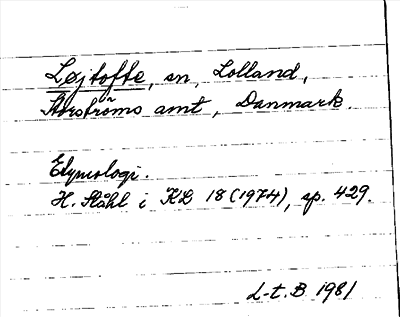 Løjtofte, sn, Lolland,
Storströms amt, Danmark.
Etymologi.
H. Ståhl i KL 18 (1974), sp. 429.
L-t. B 1981